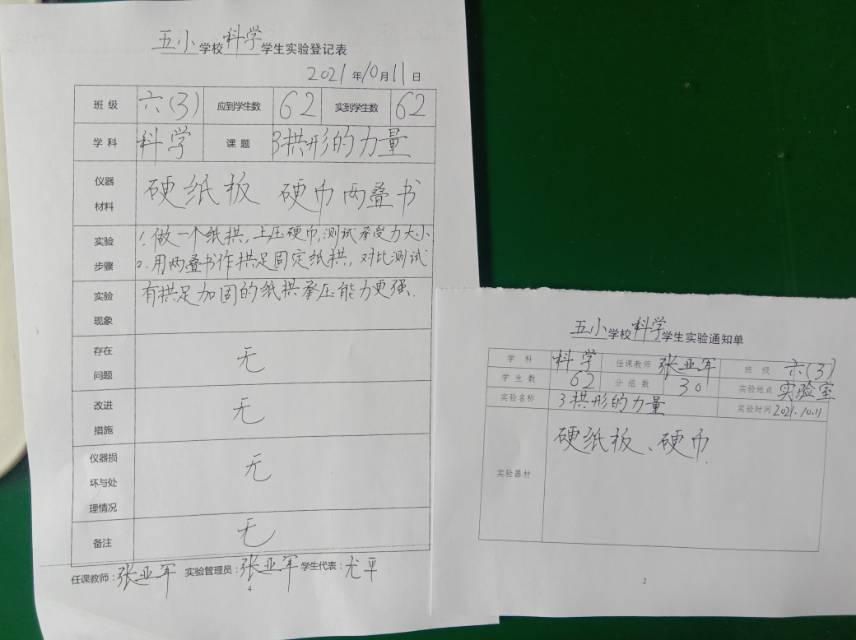 五小学校科学学生实验登记表
2021年10月11日
班级 六(3) 应到学生数 62 实到学生数 62
学科 科学 课题 3拱形的力量
仪器材料 硬纸板 硬币 两叠书
实验步骤 1.做一个纸拱,上压硬币,测试承受力大小
2.用两叠书作拱足固定纸拱,对比测试
实验现象 有拱足加固的纸拱承压能力更强.
存在问题 无
改进措施 无
仪器损坏与处理情况 无
备注 无
任课教师:张亚军 实验管理员:张亚军 学生代表:尤平
4
五小学校科学学生实验通知单
学科 科学 任课教师 张亚军 班级 六(3)
学生数 62 分组数 30 实验地点 实验室
实验名称 3拱形的力量 实验时间 2021.10.11
实验器材 硬纸板、硬币
2